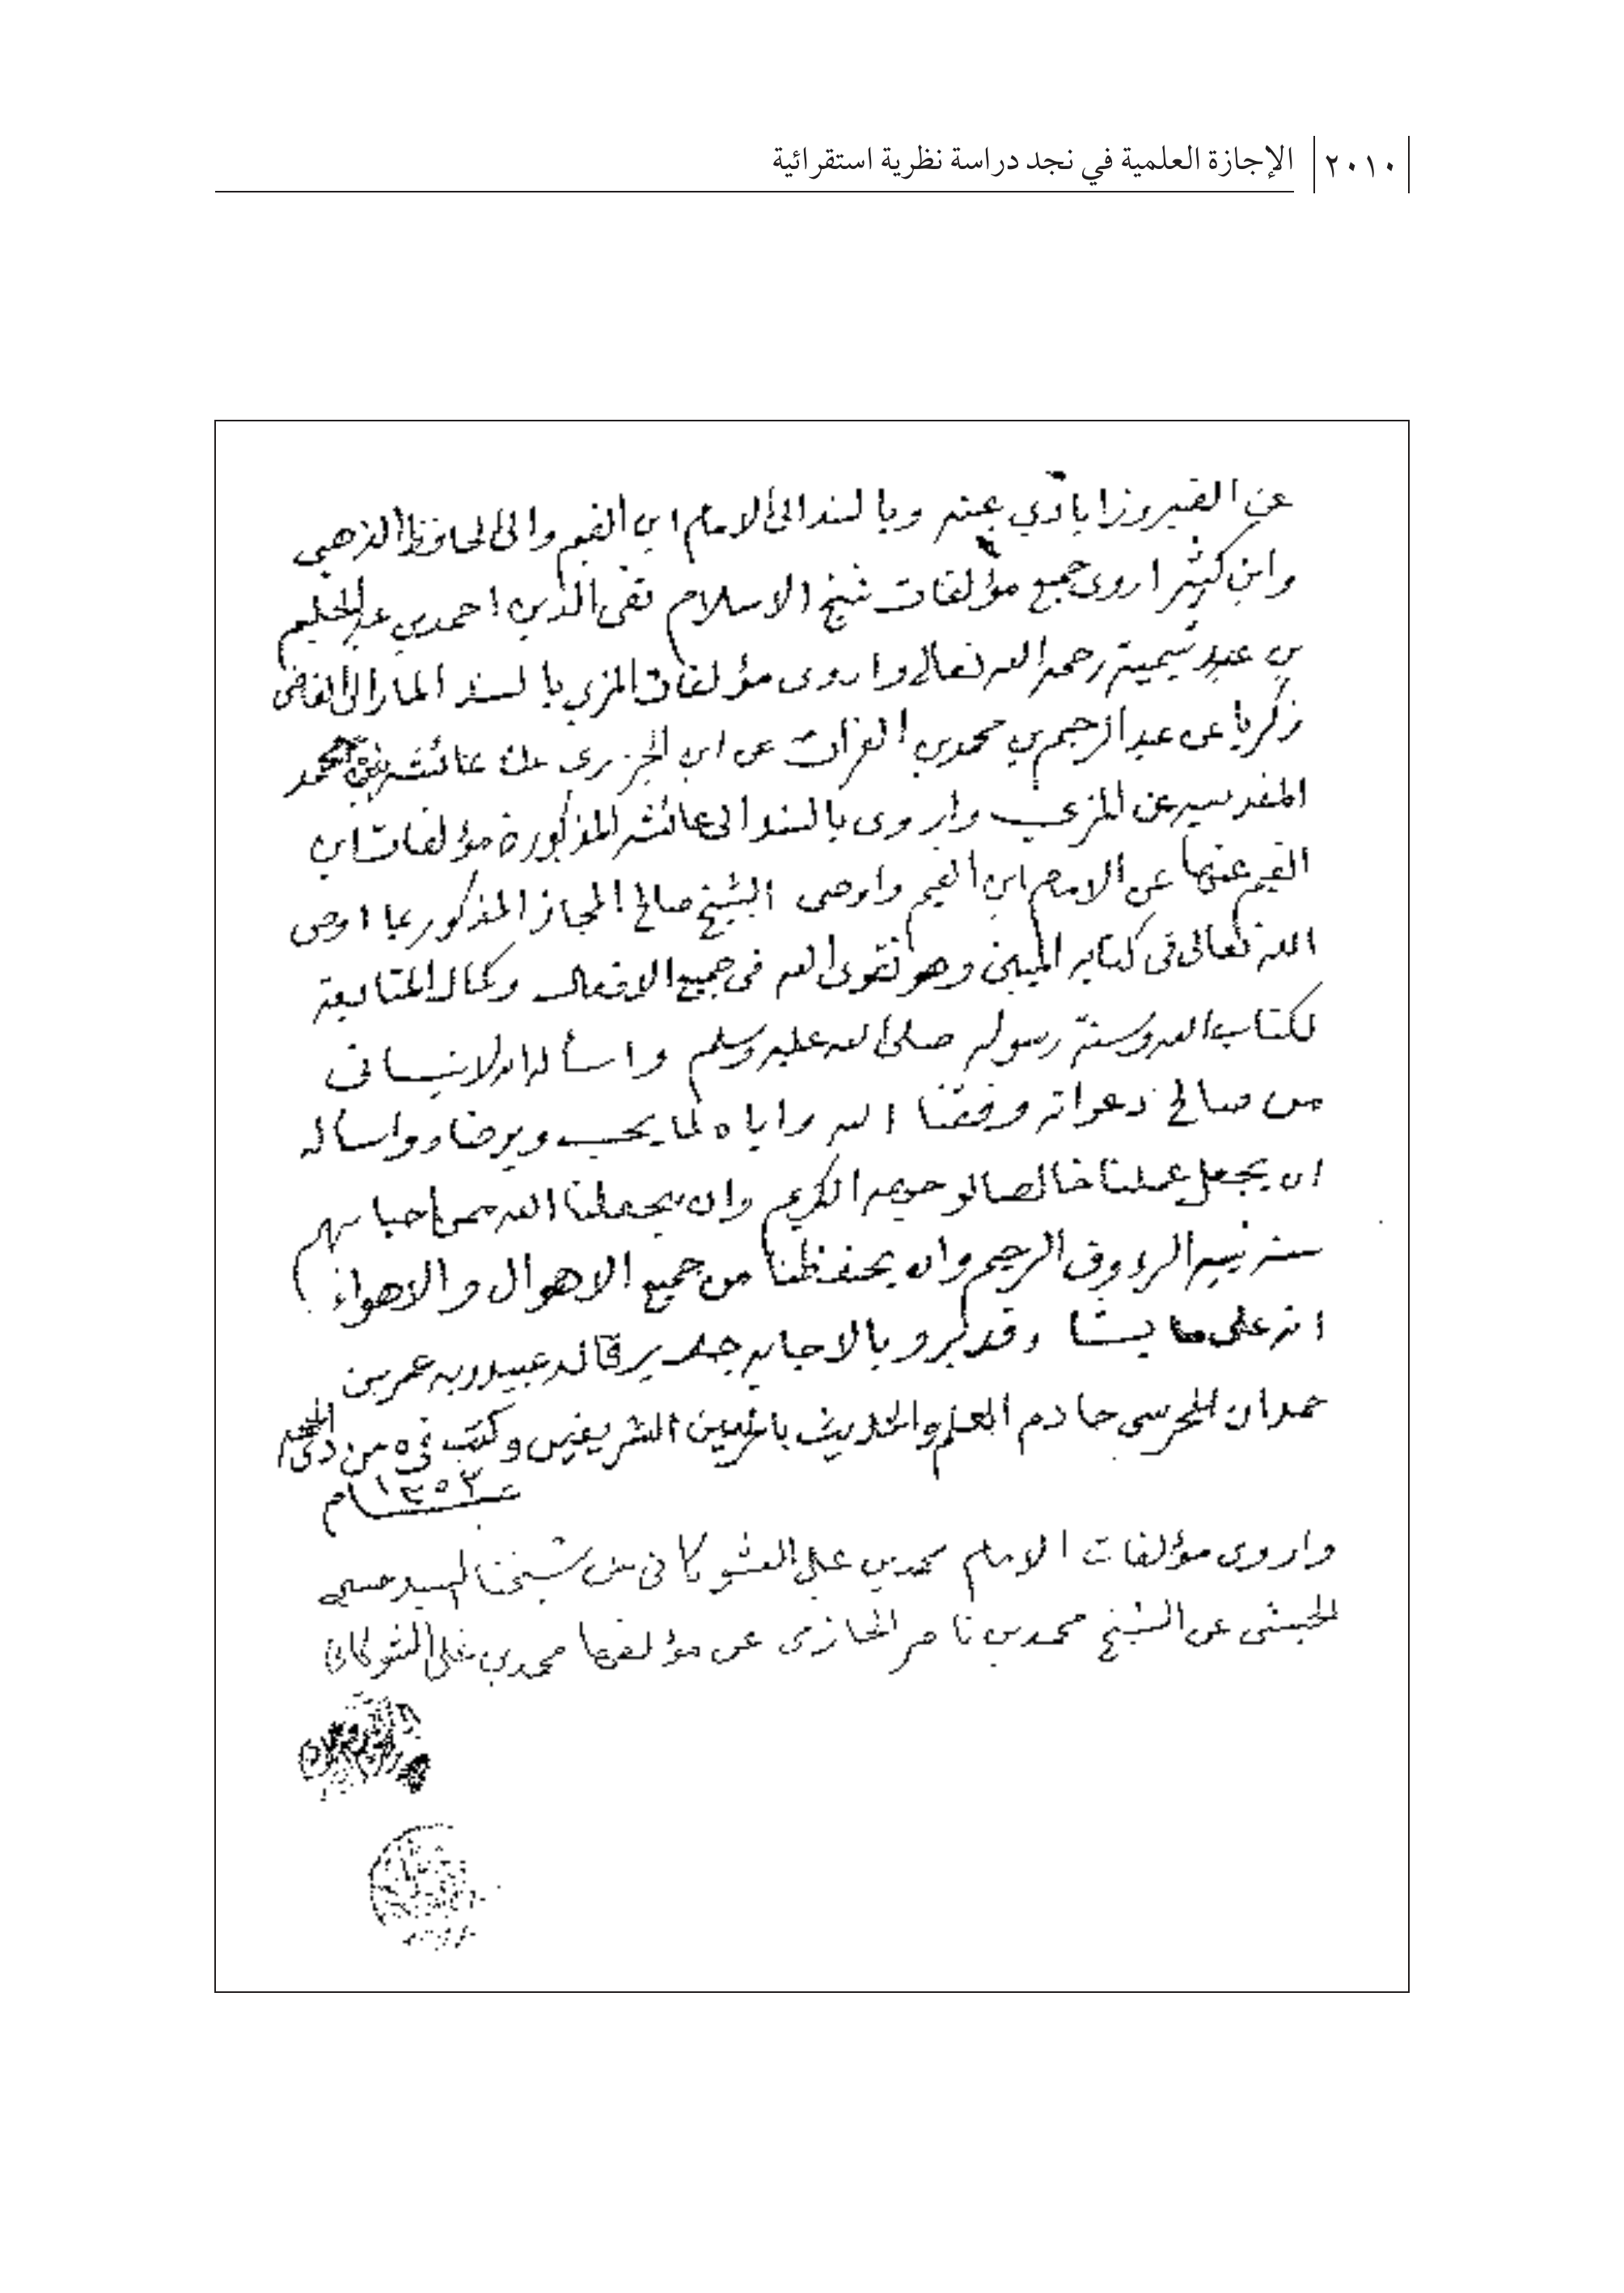 ٢٠١٠ الإجازة العلمية في نجد دراسة نظرية استقرائية
عن الفيروزابادي عنه وبالسند الى الامام ابن القيم والى الحافظ الذهبي
وابن كثير اروى جميع مؤلفات شيخ الاسلام تقى الدين احمد بن عبد الحليم
بن عبد تيمية رحمه الله تعالى واروى مؤلفات المزي بالسند المار الى القاضى
زكريا عن عبد الرحيم بن محمد بن الفرات عن ابن الجزرى عن عائشة محمد
المقدسيه عن المزي واروى بالسند الى عائشه المذكورة مؤلفات ابن
القيم عنها عن الامام ابن القيم واوصى الشيخ صالح المجاز المذكور بما اوصى
الله تعالى فى كتابه المبين وهو تقوى الله فى جميع الافعال وكمال المتابعة
لكتاب الله وسنة رسوله صلى الله عليه وسلم واسأله ان لا ينسانى
من صالح دعواته وفقنا الله واياه لما يحب ويرضاه واسأله
ان يجعل عملنا خالصا لوجهه الكريم وان يجعلنا الله حبا
سنة نبيه الرءوف الرحيم وان يحفظنا من جميع الاهوال والاهواء
انه على ما يشا وبالاجابه جدير قاله عمر بن
حمدان المحرسى خادم العلم والحديث بالحرمين الشريفين وكتب فى ٥ من ذى الحجه
عام ١٣٥٢
واروى مؤلفات الامام محمد بن على الشوكانى عن شيخنا السيد حسين
الحبشى عن الشيخ محمد بن ناصر الحازمى عن مؤلفها محمد بن على الشوكانى